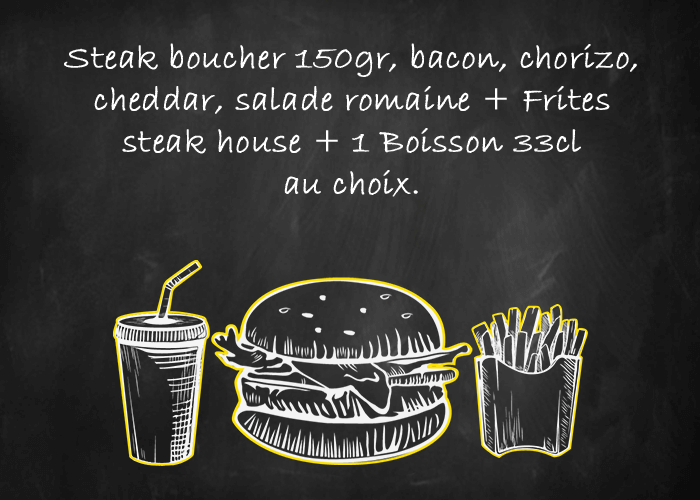 Steak boucher 150gr, bacon, chorizo,
cheddar, salade romaine + Frites
steak house + 1 Boisson 33cl
au choix.